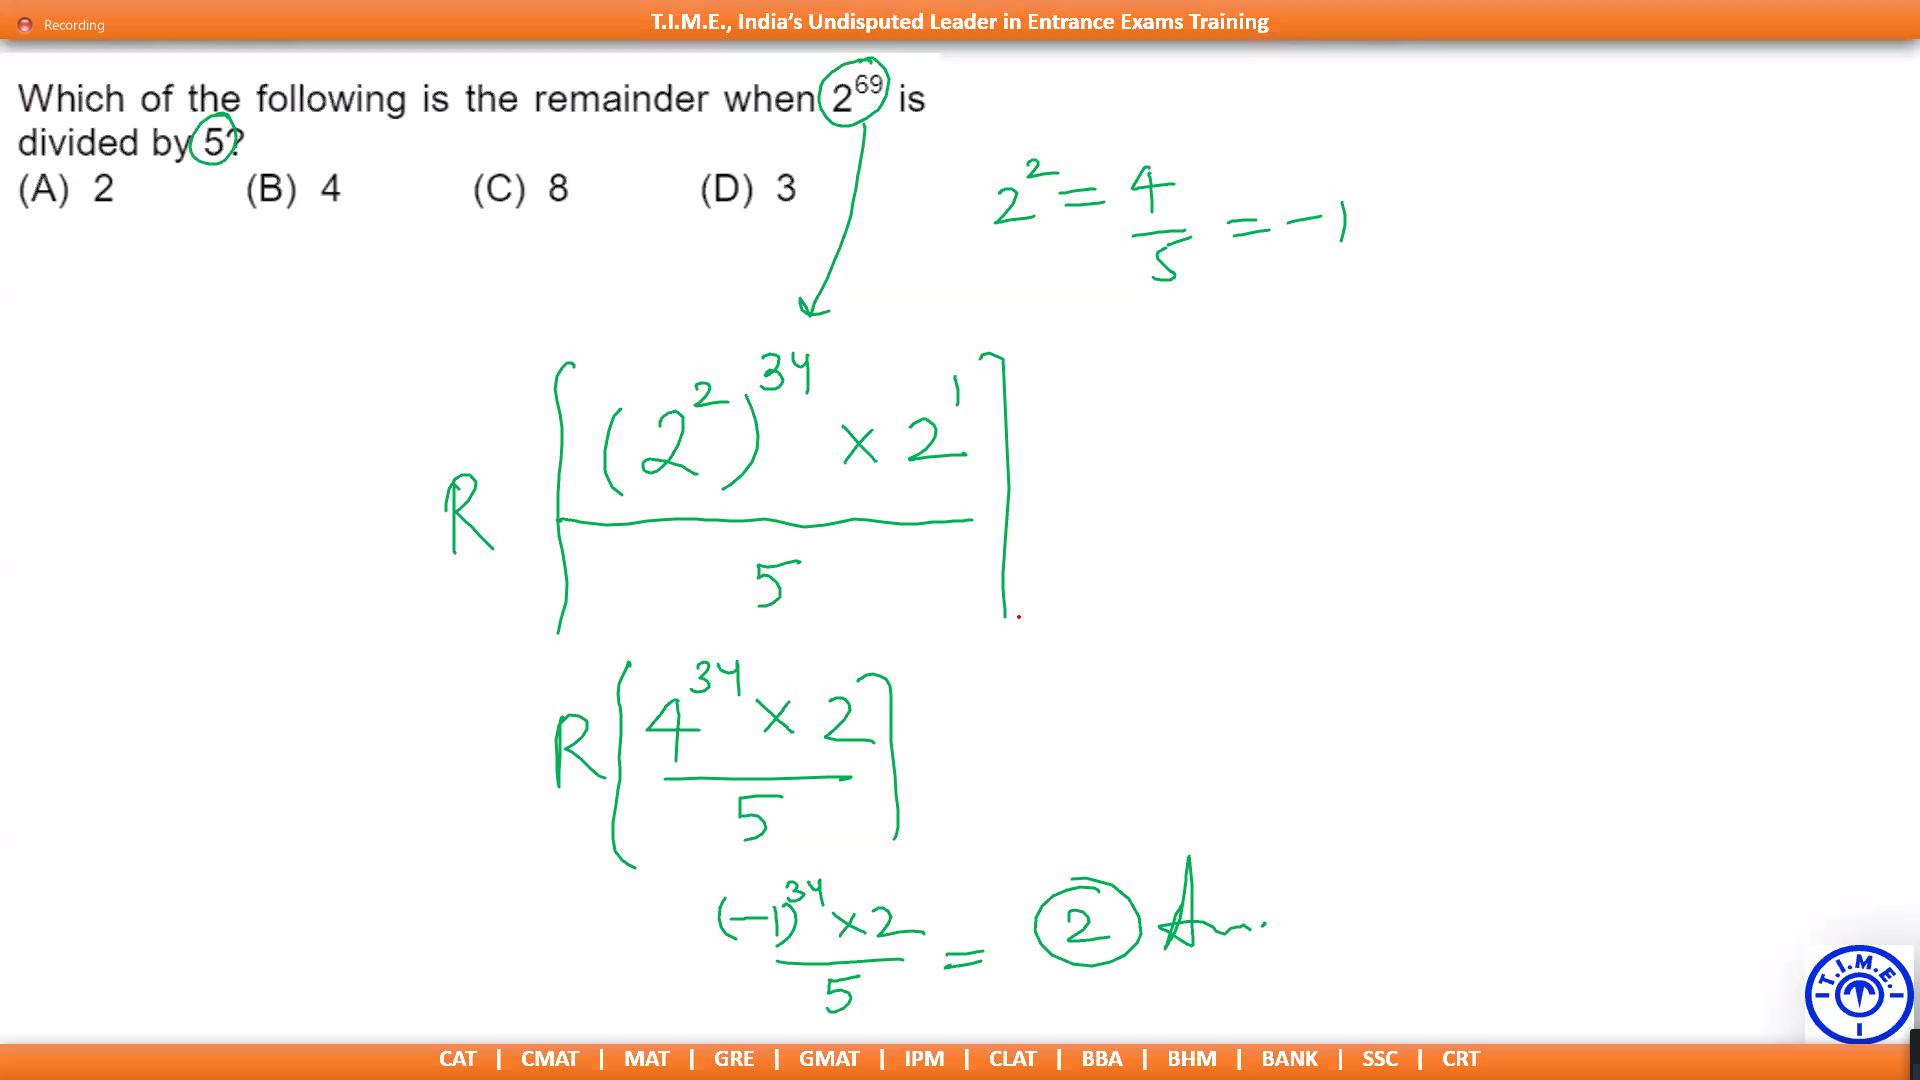 Recording
T.I.M.E., India's Undisputed Leader in Entrance Exams Training
Which of the following is the remainder when 2^69 is
divided by 5?
(A) 2 (B) 4 (C) 8 (D) 3
2^2 = 4/5 = -1
R [(2^2)^34 × 2^1 / 5]
R [4^34 × 2 / 5]
(-1)^34 × 2 / 5 = 2 Ans.
T.I.M.E.
CAT | CMAT | MAT | GRE | GMAT | IPM | CLAT | BBA | BHM | BANK | SSC | CRT